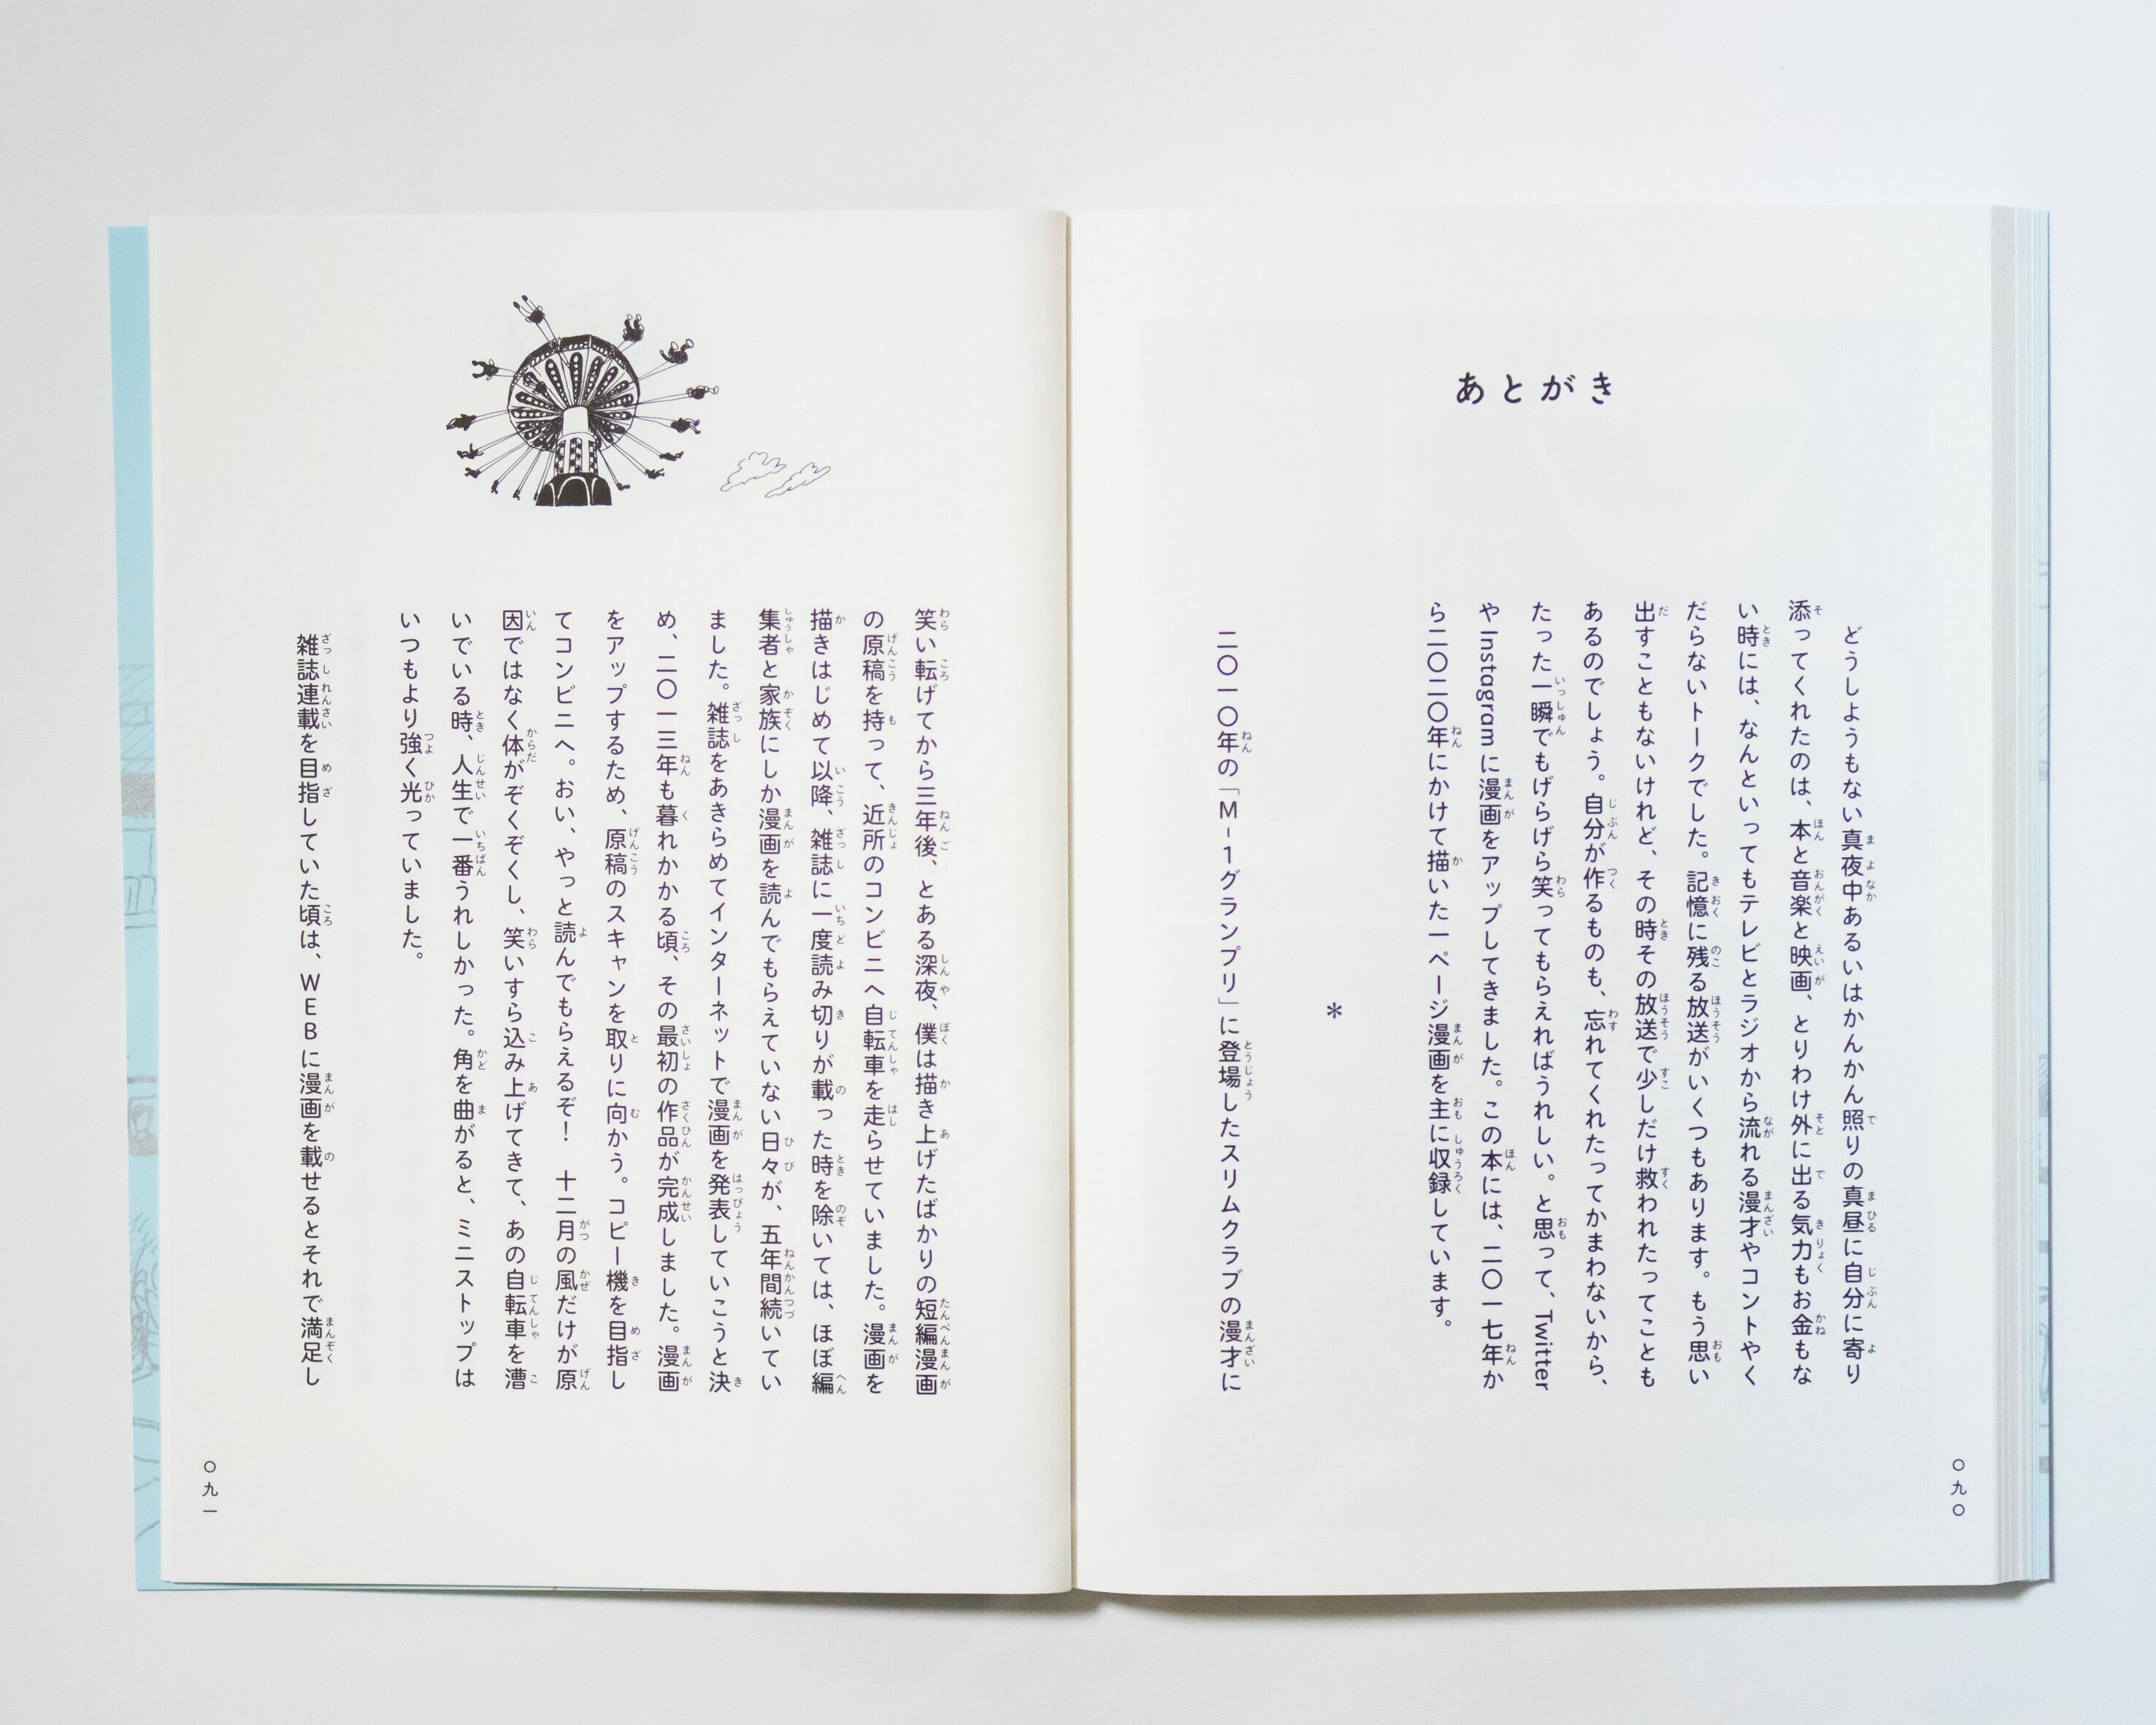 あとがき
どうしようもない真夜中あるいはかんかん照りの真昼に自分に寄り
添ってくれたのは、本と音楽と映画、とりわけ外に出る気力もお金もな
い時には、なんといってもテレビとラジオから流れる漫才やコントやく
だらないトークでした。記憶に残る放送がいくつもあります。もう思い
出すこともないけれど、その時その放送で少しだけ救われたってことも
あるのでしょう。自分が作るものも、忘れてくれたってかまわないから、
たった一瞬でもげらげら笑ってもらえればうれしい。と思って、Twitter
やInstagramに漫画をアップしてきました。この本には、二〇一七年か
ら二〇二〇年にかけて描いた一ページ漫画を主に収録しています。
*
二〇一〇年の「M-1グランプリ」に登場したスリムクラブの漫才に
〇九〇
笑い転げてから三年後、とある深夜、僕は描き上げたばかりの短編漫画
の原稿を持って、近所のコンビニへ自転車を走らせていました。漫画を
描きはじめて以降、雑誌に一度読み切りが載った時を除いては、ほぼ編
集者と家族にしか漫画を読んでもらえていない日々が、五年間続いてい
ました。雑誌をあきらめてインターネットで漫画を発表していこうと決
め、二〇一三年も暮れかかる頃、その最初の作品が完成しました。漫画
をアップするため、原稿のスキャンを取りに向かう。コピー機を目指し
てコンビニへ。おい、やっと読んでもらえるぞ！　十二月の風だけが原
因ではなく体がぞくぞくし、笑いすら込み上げてきて、あの自転車を漕
いでいる時、人生で一番うれしかった。角を曲がると、ミニストップは
いつもより強く光っていました。
雑誌連載を目指していた頃は、WEBに漫画を載せるとそれで満足し
〇九一